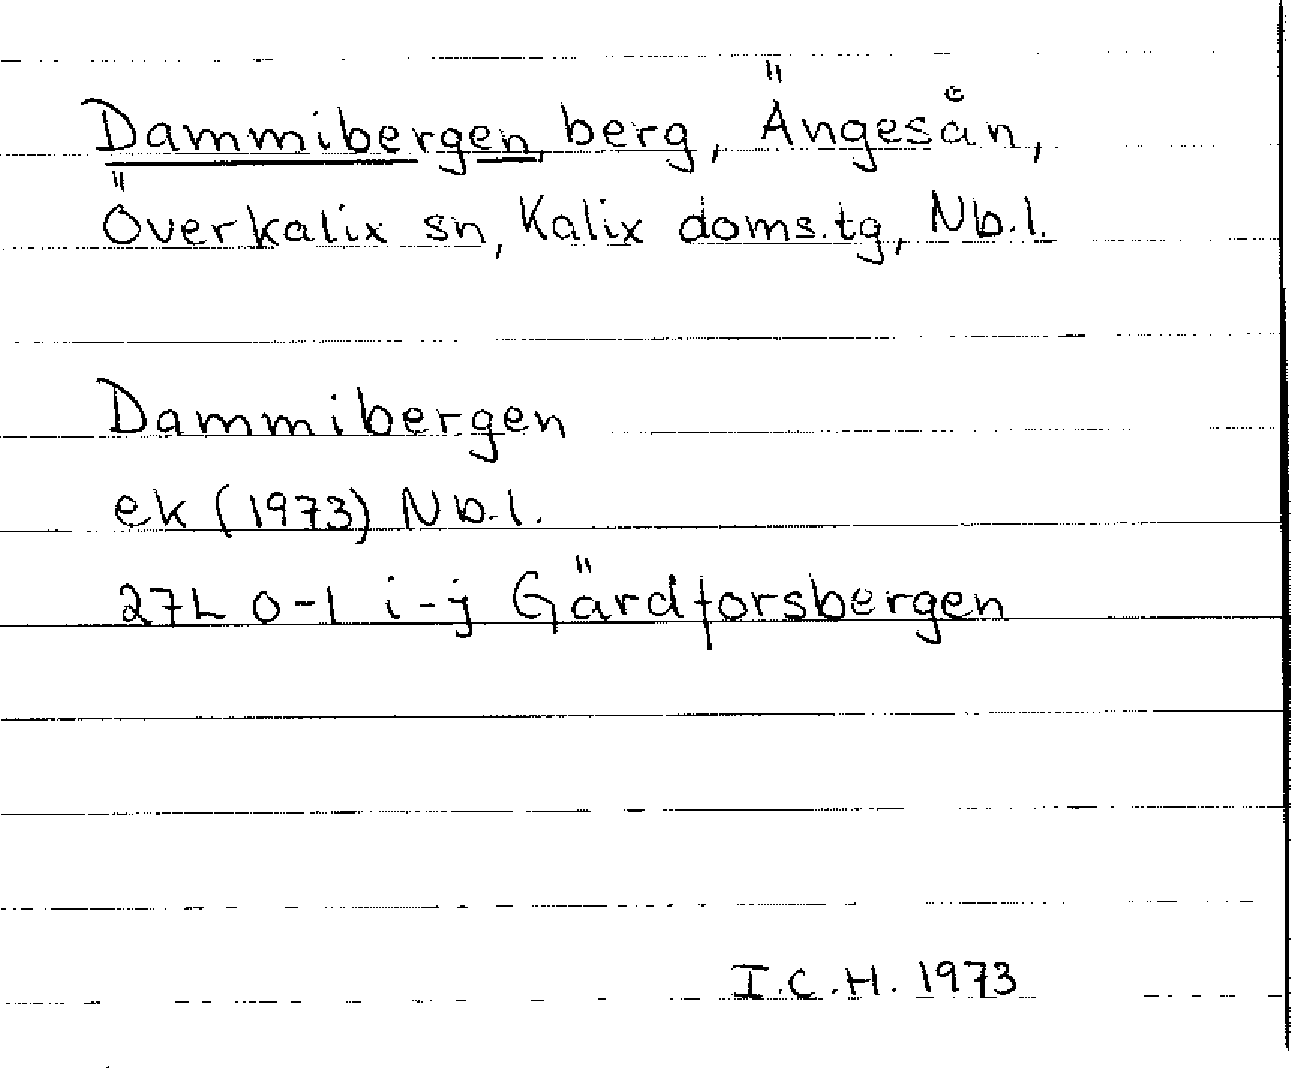 Dammibergen, berg, Ängesån,
Överkalix sn, Kalix doms.tg, Nb.l.
Dammibergen
ek (1973) Nb.l.
27L 0-1 i-j Gärdforsbergen
I.C.H. 1973